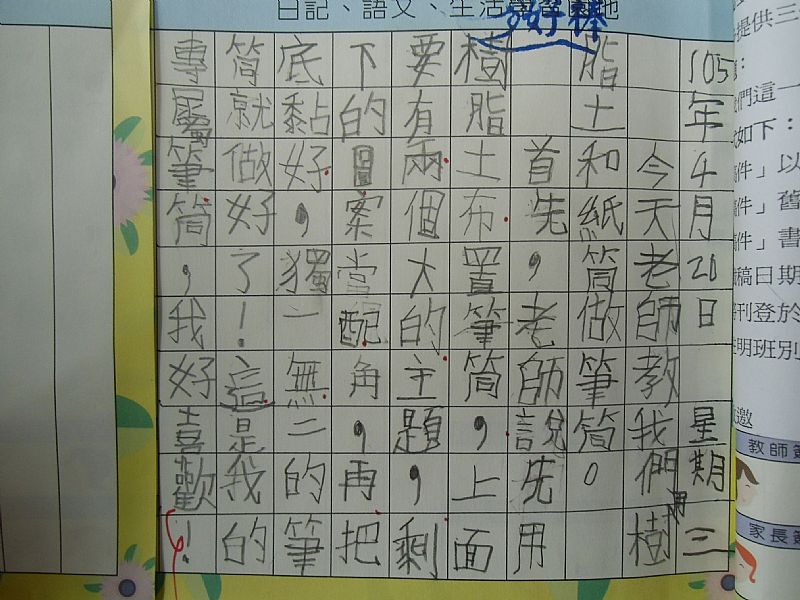 日記、語文、生活
地
好棒
105年4月20日 星期三
今天老師教我們用樹
脂土和紙筒做筆筒。
首先，老師說先用
樹脂土布置筆筒，上面
要有兩個大的主題，剩
下的圖案當配角，再把
底黏好，獨一無二的筆
筒就做好了！這是我的
專屬筆筒，我好喜歡！
提供三
們這一
如下：
件」以
件」舊
件」書
稿日期
刊登於
明班別
邀
教師
家長